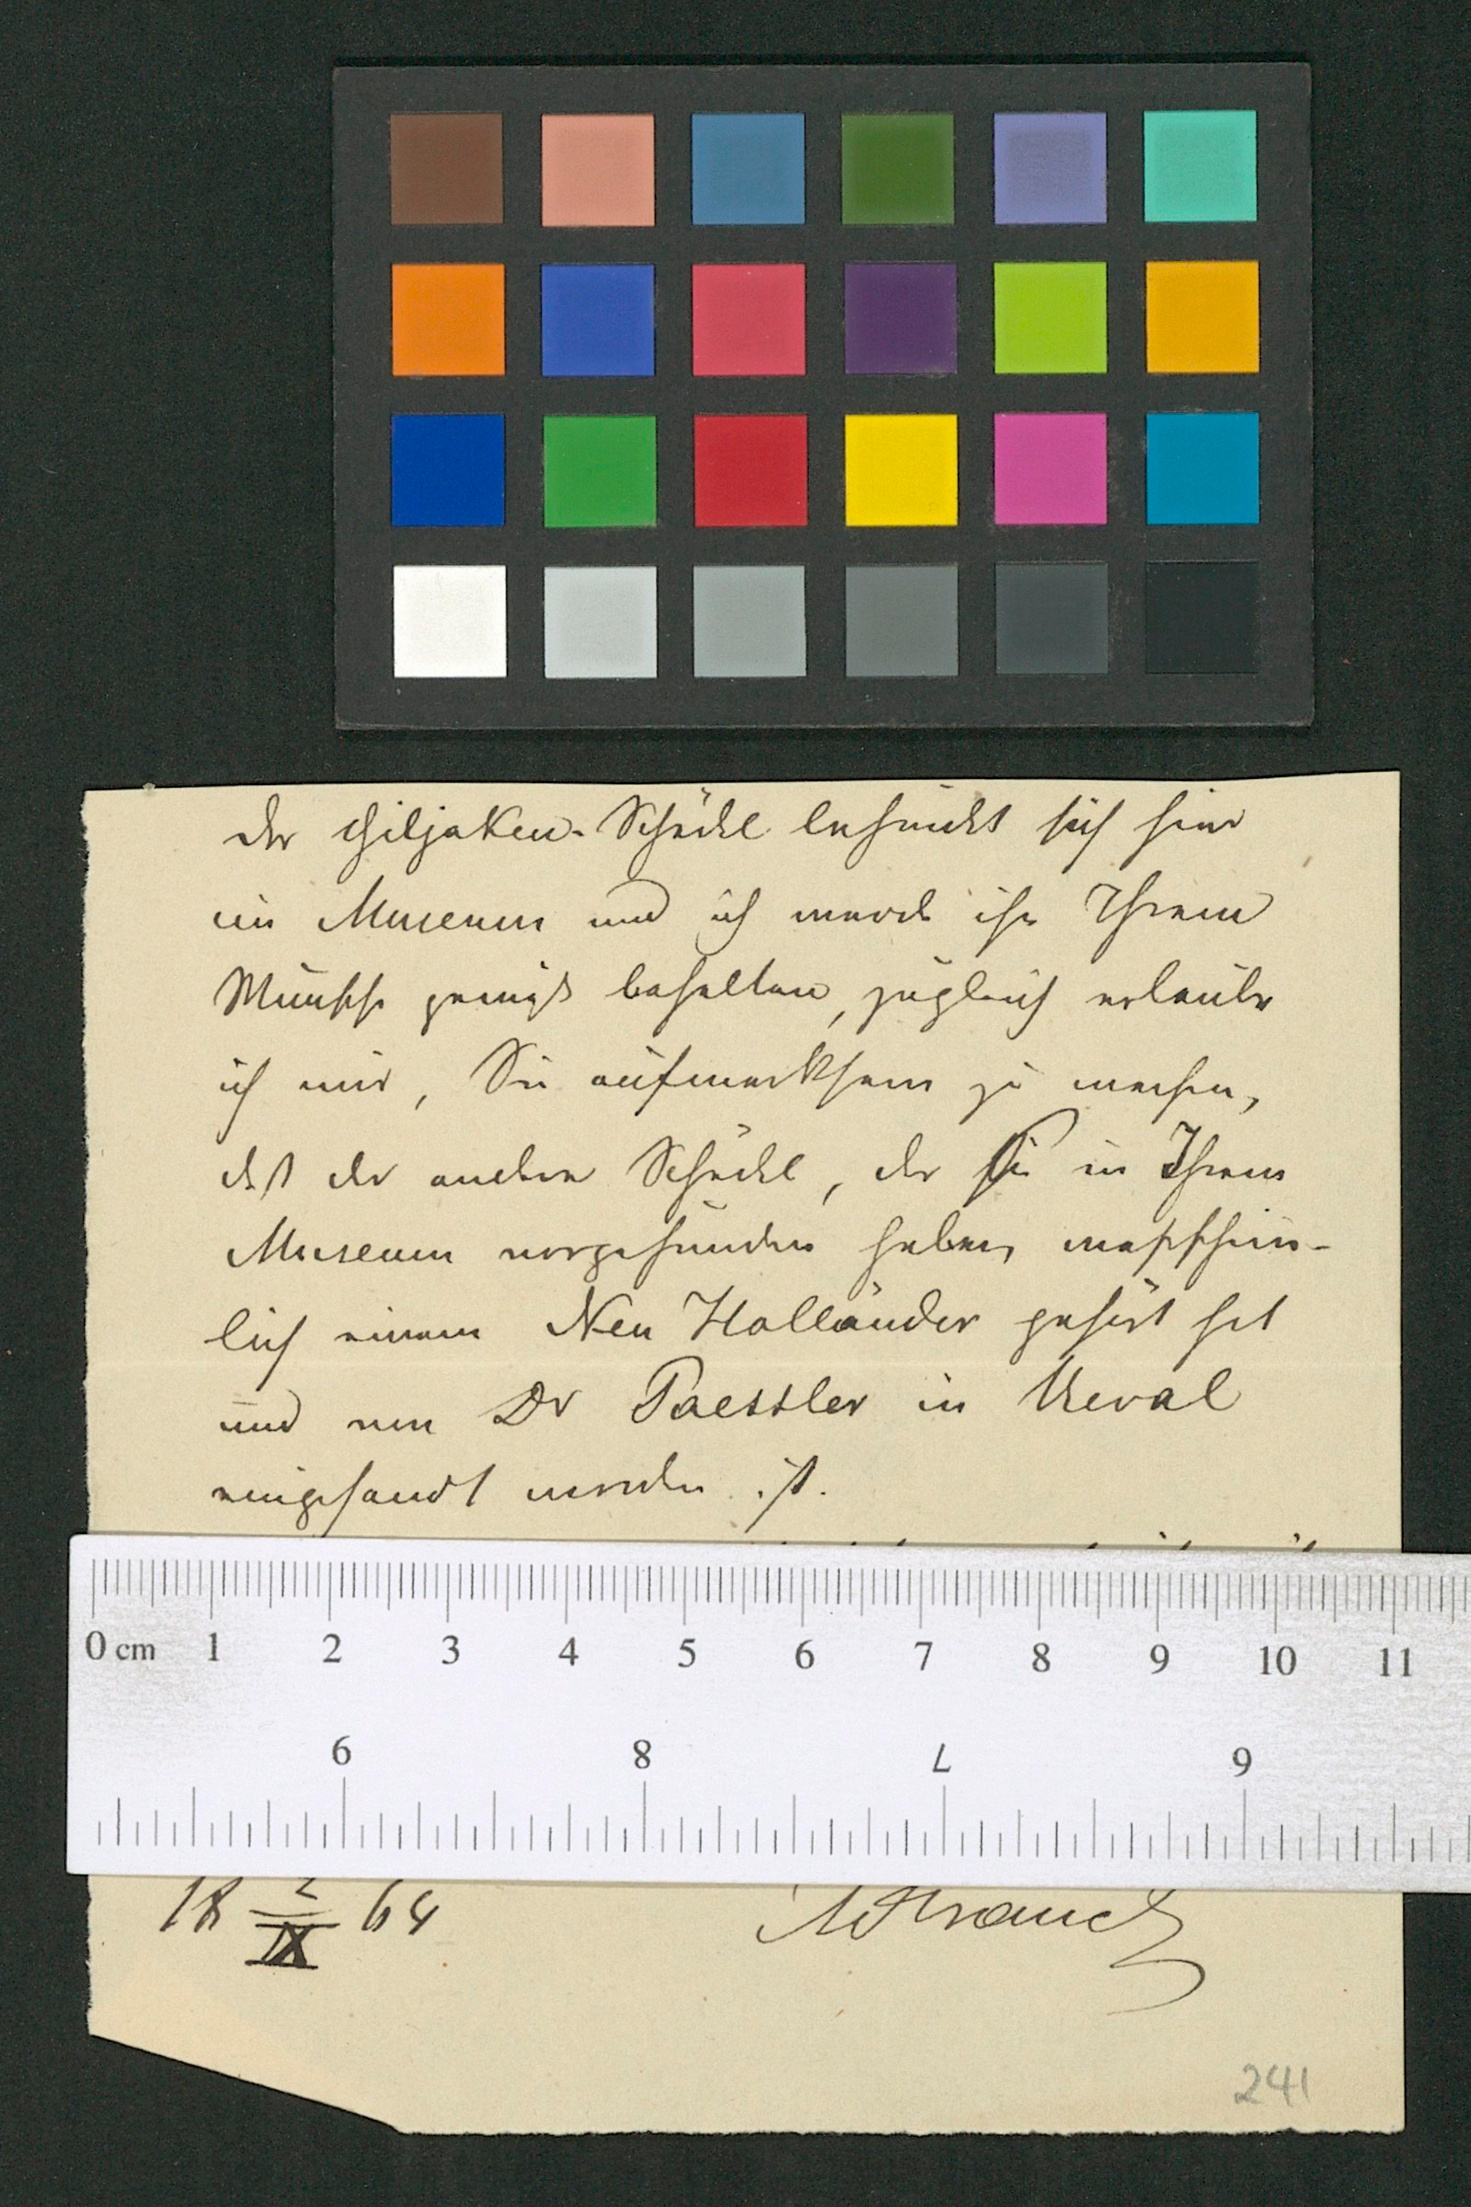 der Giljaken-Schädel befindet sich hier
im Museum und ich werde ihn Ihrem
Wunsche gemäß behalten, zugleich erlaube
ich mir, Sie aufmerksam zu machen,
daß der andere Schädel, der sich in Ihrem
Museum vorgefunden haben, wahrschein-
lich einem Neu Holländer gehört hat
und von Dr Paessler in Reval
eingesandt worden ist.
0 cm 1 2 3 4 5 6 7 8 9 10 11
9 8 7 6
18 2/IX 64 AStrauch
241